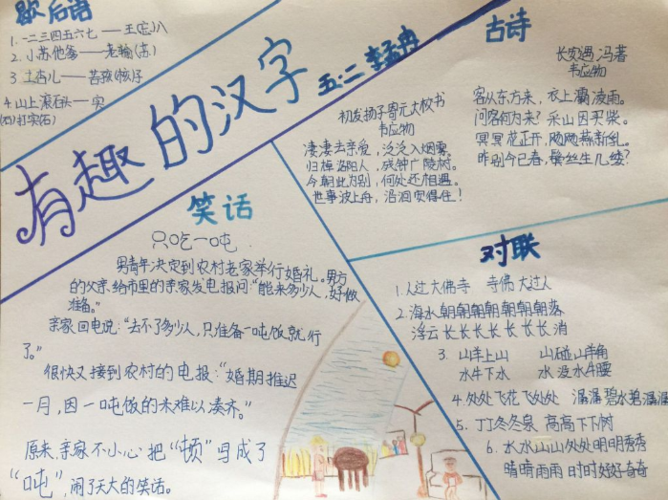 歇后语
1.一二三四五六七——王(忘)八
2.小苏他爹——老输(苏)
3.土杏儿——苦孩(核)子
4.山上滚石头——实
(石)打实(石)
有趣的汉字
五.二
古诗
长安遇冯著
韦应物
客从东方来，衣上灞陵雨。
问客何为来？采山因买柴。
冥冥花正开，飏飏燕新乳。
昨别今已春，鬓丝生几缕？
初发扬子寄元大校书
韦应物
凄凄去亲爱，泛泛入烟雾。
归棹洛阳人，残钟广陵树。
今朝此为别，何处还相遇。
世事波上舟，沿洄安得住！
笑话
只吃一吨
男青年决定到农村老家举行婚礼。男方
的父亲给市里的亲家发电报问："能来多少人，好做
准备。"
亲家回电说："去不了多少人，只准备一吨饭就行
了。"
很快又接到农村的电报："婚期推迟
一月，因一吨饭的米难以凑齐。"
原来，亲家不小心把"顿"写成了
"吨"，闹了天大的笑话。
对联
1.人过大佛寺 寺佛大过人
2.海水朝朝朝朝朝朝朝落
浮云长长长长长长长消
3.山羊上山 山碰山羊角
水牛下水 水没水牛腰
4.处处飞花飞处处 潺潺碧水碧潺潺
5.丁丁冬冬泉 高高下下树
6.水水山山处处明明秀秀
晴晴雨雨时时好好奇奇